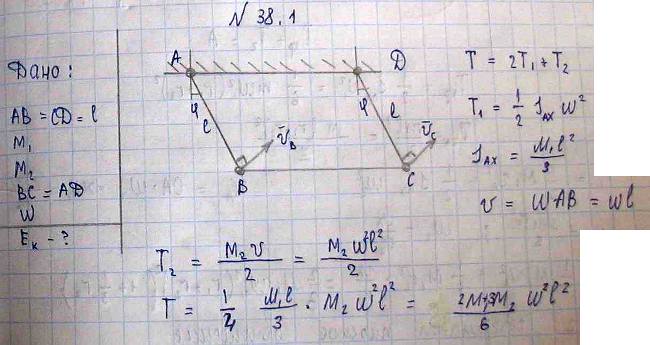 № 38.1
Дано:
AB = CD = l
M₁
M₂
BC = AD
W
Eк - ?
A
D
φ
l
φ
l
v̄B
v̄C
B
C
T = 2T₁ + T₂
T₁ = 1/2 JAX W²
JAX = M₁l²/3
v = WAB = Wl
T₂ = M₂v/2 = M₂W²l²/2
T = 1/2 M₁l/3 · M₂W²l² = 2M₁+3M₂/6 W²l²